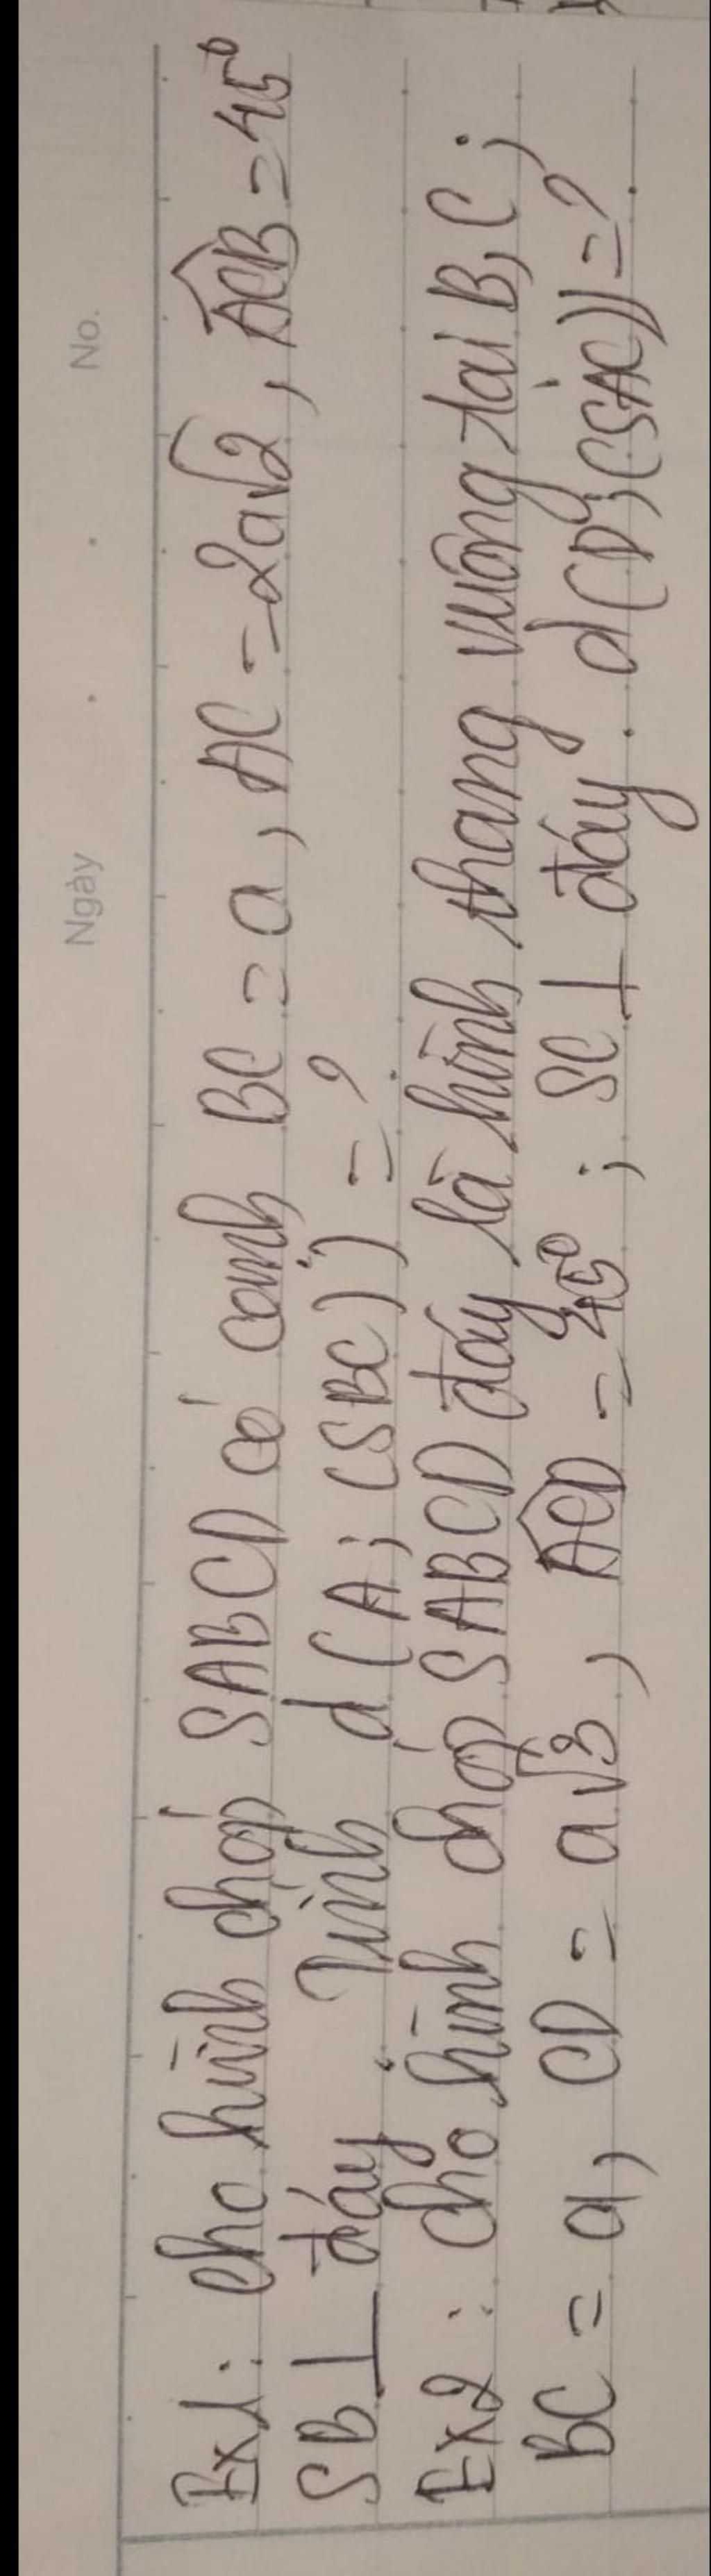 Ngày No.
Ex1: cho hình chóp SABCD có cạnh BC = a, AC = 2a√2, ACB = 45°
SB ⊥ đáy. Tính d(A; (SBC)) = ?
Ex2: cho hình chóp SABCD đáy là hình thang vuông tại B, C;
BC = a, CD = a√3, ACD = 45°; SC ⊥ đáy. d(D; (SAC)) = ?